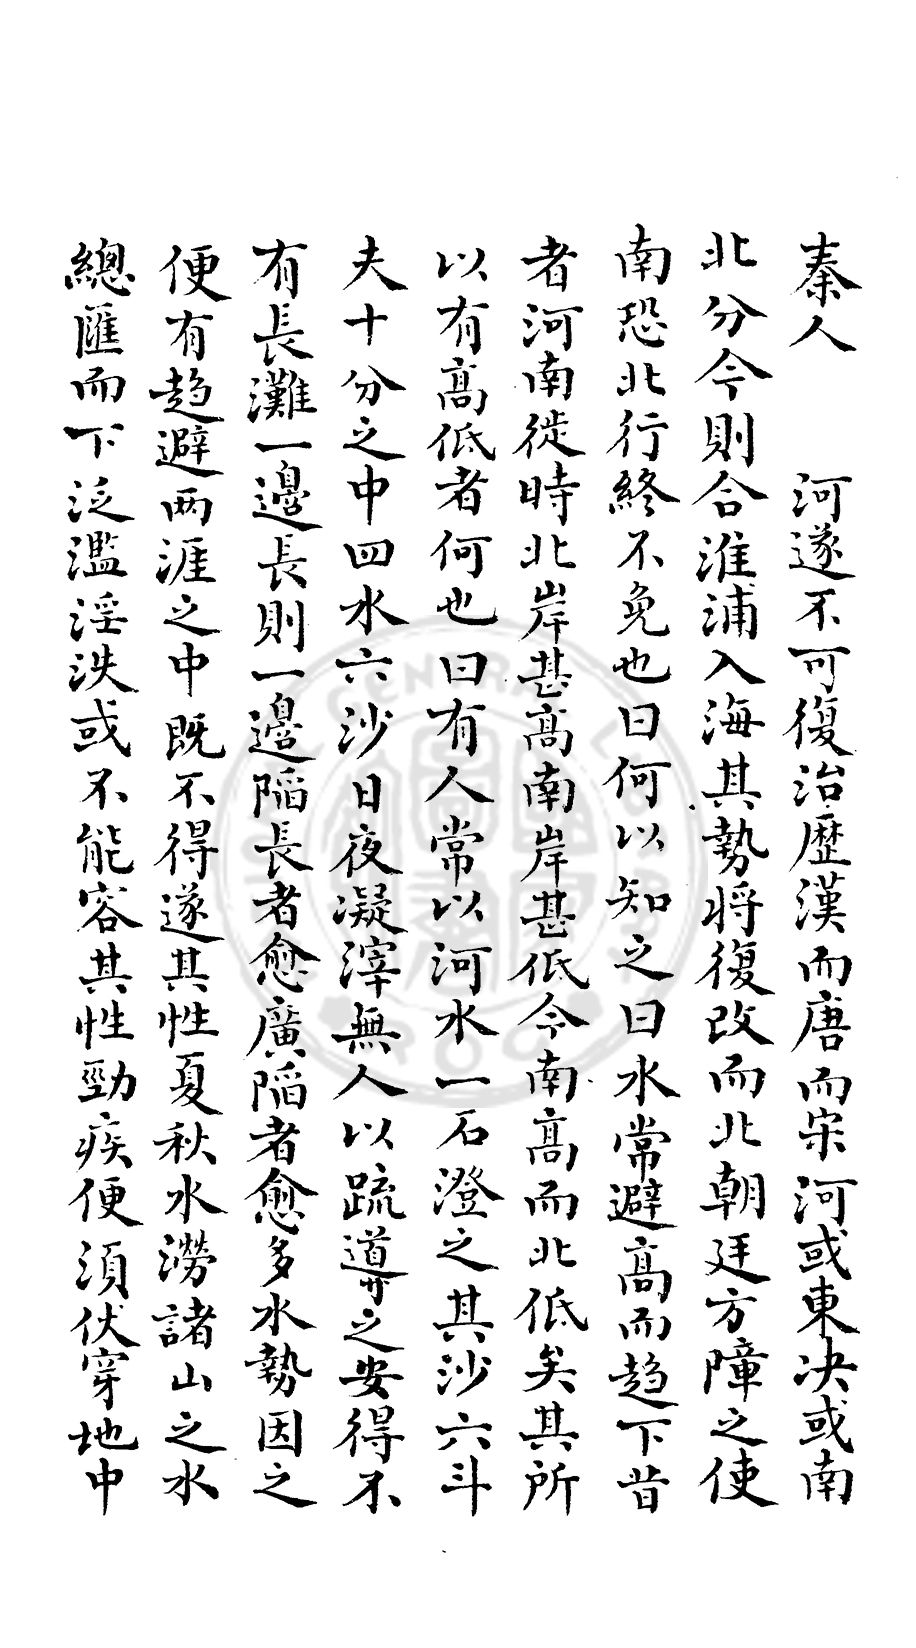 秦人　　河遂不可復治歷漢而唐而宋河或東决或南
北分今則合淮浦入海其勢将復改而北朝廷方障之使
南恐北行終不免也曰何以知之曰水常避髙而趋下昔
者河南徙時北岸甚髙南岸甚低今南髙而北低矣其所
以有髙低者何也曰有人常以河水一石澄之其沙六斗
夫十分之中四水六沙日夜凝滓無人以疏導之安得不
有長灘一邉長則一邉陷長者愈廣陷者愈多水勢因之
便有趋避两涯之中既不得遂其性夏秋水澇諸山之水
總匯而下泛濫淫泆或不能容其性勁疾便須伏穿地中